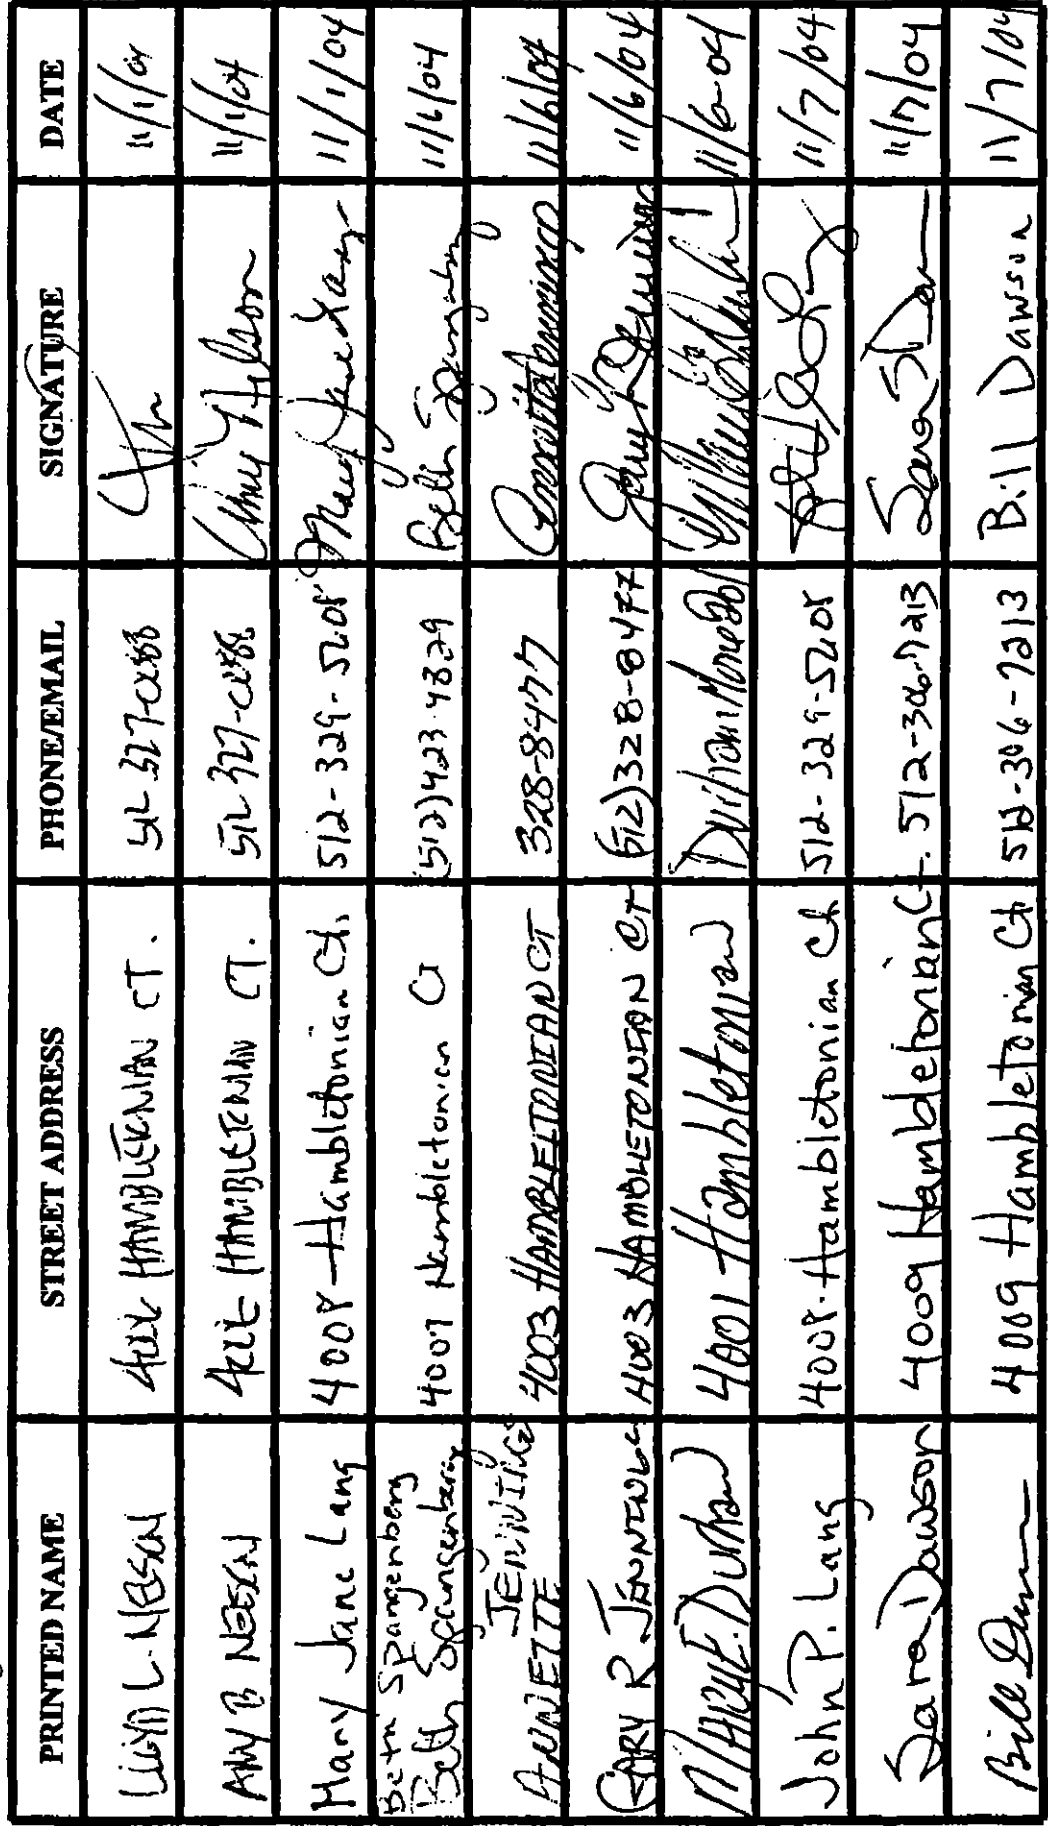 PRINTED NAME STREET ADDRESS PHONE/EMAIL SIGNATURE DATE
L. NELSON HAMBLETONIAN CT. 512-327- 11/1/04
AMY B NELSON HAMBLETONIAN CT. 512 327- Amy Nelson 11/1/04
Mary Jane Lang 4008 Hambletonian Ct. 512-329-5208 Mary Jane Lang 11/1/04
Beth Spangenberg
Beth Spangenberg 4007 Hambletonian Ct (512)423-4829 Beth Spangenberg 11/6/04
JENNINGS
ANNETTE 4003 HAMBLETONIAN CT 328-8477 Annette Jennings 11/6/04
GARY R JENNINGS 4003 HAMBLETONIAN CT (512)328-8477 Gary R Jennings 11/6/04
E. Durham 4001 Hambletonian 11/6-04
John P. Lang 4008 Hambletonian Ct 512-329-5208 11/7/04
Sara Dawson 4009 Hambletonian Ct. 512-306-7213 Sara Dawson 11/7/04
Bill Dawson 4009 Hambletonian Ct 512-306-7213 Bill Dawson 11/7/04